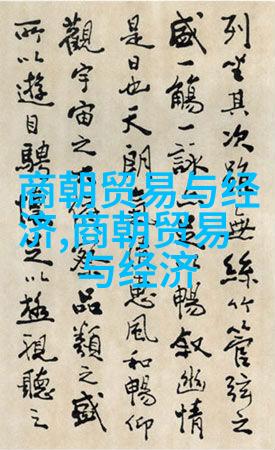 商朝贸易与经
济,商朝贸易
与经济
列坐其次雖無絲竹管弦之
盛一觴一詠足以暢叙幽情
是日也天朗氣惠風和暢仰
觀宇宙之品類之盛
所以遊目騁懷足以極視聽之